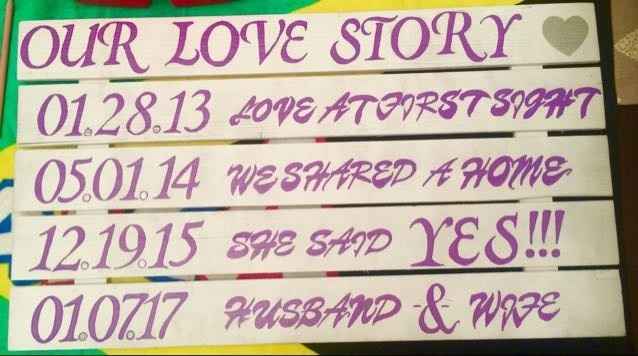 OUR LOVE STORY
01.28.13 LOVE AT FIRST SIGHT
05.01.14 WE SHARED A HOME
12.19.15 SHE SAID YES!!!
01.07.17 HUSBAND & WIFE